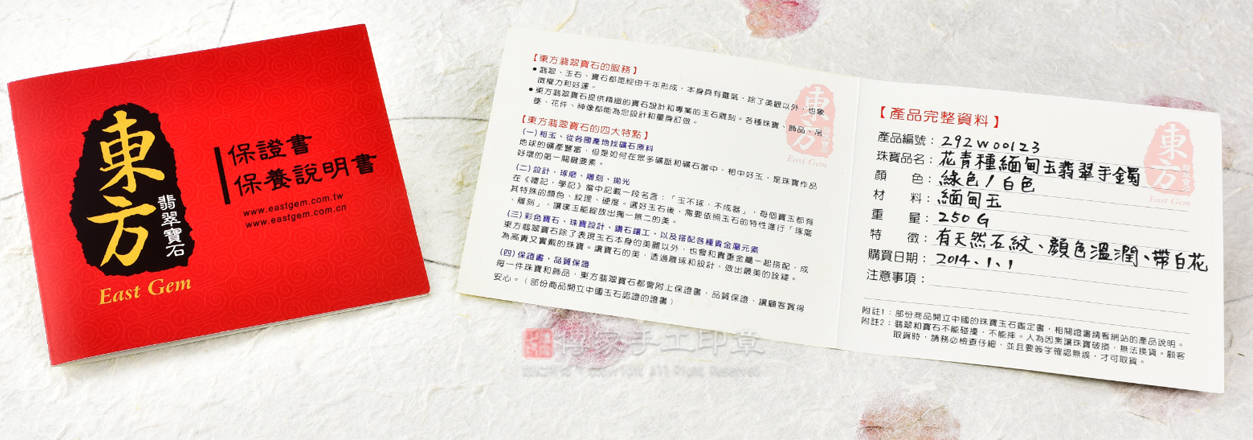 東方
翡翠寶石
East Gem
保證書
保養說明書
www.eastgem.com.tw
www.eastgem.com.cn
【東方翡翠寶石的服務】
●翡翠、玉石、寶石都是經由千年形成，本身具有靈氣，除了美觀以外，也象
徵魔力和好運。
●東方翡翠寶石提供精緻的寶石設計和專業的玉石雕刻。各種珠寶、飾品、吊
墜、花件、神像都能為您設計和量身訂做。
【東方翡翠寶石的四大特點】
(一) 相玉、從各國產地找礦石原料
地球的礦產豐富，但是如何在眾多礦脈和礦石當中，相中好玉，是珠寶作品
好壞的第一關鍵要素。
(二) 設計、琢磨、雕刻、拋光
在《禮記‧學記》當中記載一段名言：「玉不琢、不成器」，每個寶玉都有
其特殊的顏色、紋理、硬度。選好玉石後，需要依照玉石的特性進行「琢磨
、雕刻」，讓璞玉能綻放出獨一無二的美。
(三) 彩色寶石、珠寶設計、鑽石鑲工，以及搭配各種貴金屬元素
東方翡翠寶石除了表現玉石本身的美觀以外，也會和貴重金屬一起搭配，成
為高貴又實戴的珠寶。讓寶石的美，透過雕琢和設計，做出最美的詮釋。
(四) 保證書，品質保證
每一件珠寶和飾品，東方翡翠寶石都會附上保證書，品質保證，讓顧客買得
安心。（部份商品開立中國玉石認證的證書）
東方
East Gem
【產品完整資料】
產品編號：292W00123
珠寶品名：花青種緬甸玉翡翠手鐲
顏　色：綠色/白色
材　料：緬甸玉
重　量：250G
特　徵：有天然石紋、顏色溫潤、帶白花
購買日期：2014.1.1
注意事項：
附註1：部份商品開立中國的珠寶玉石鑑定書，相關證書請看網站的產品說明。
附註2：翡翠和寶石不能碰撞，不能摔。人為因素讓珠寶破損，無法換貨。顧客
取貨時，請務必檢查仔細，並且要簽字確認無誤，才可取貨。
東方
East Gem
手工印章
All Right Reserved